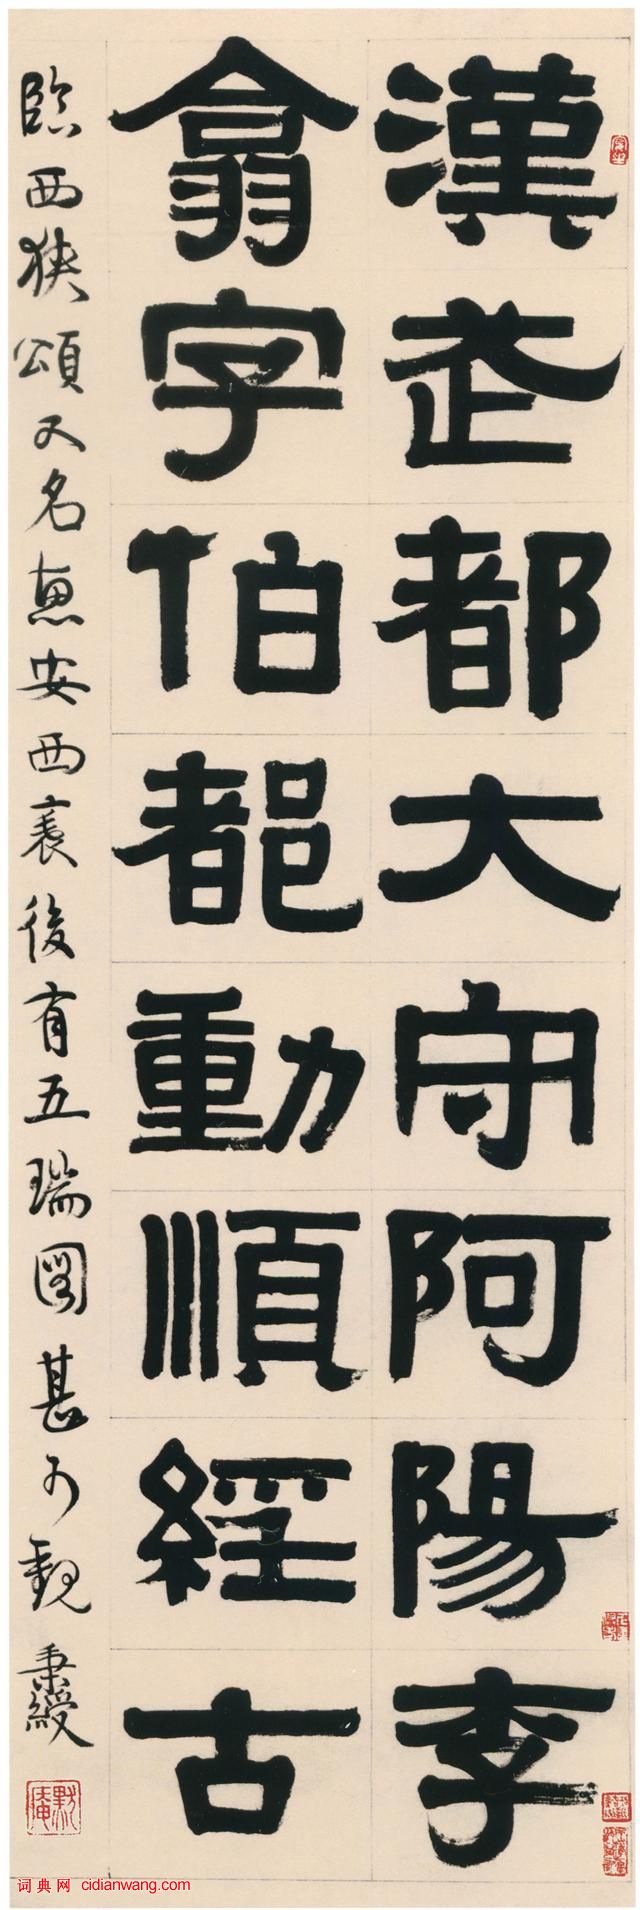 漢武都大守阿陽李
翕字伯都動順經古
臨西狹頌又名惠安西表後有五瑞圖甚可觀 秉綬
默庵
词典网 cidianwang.com